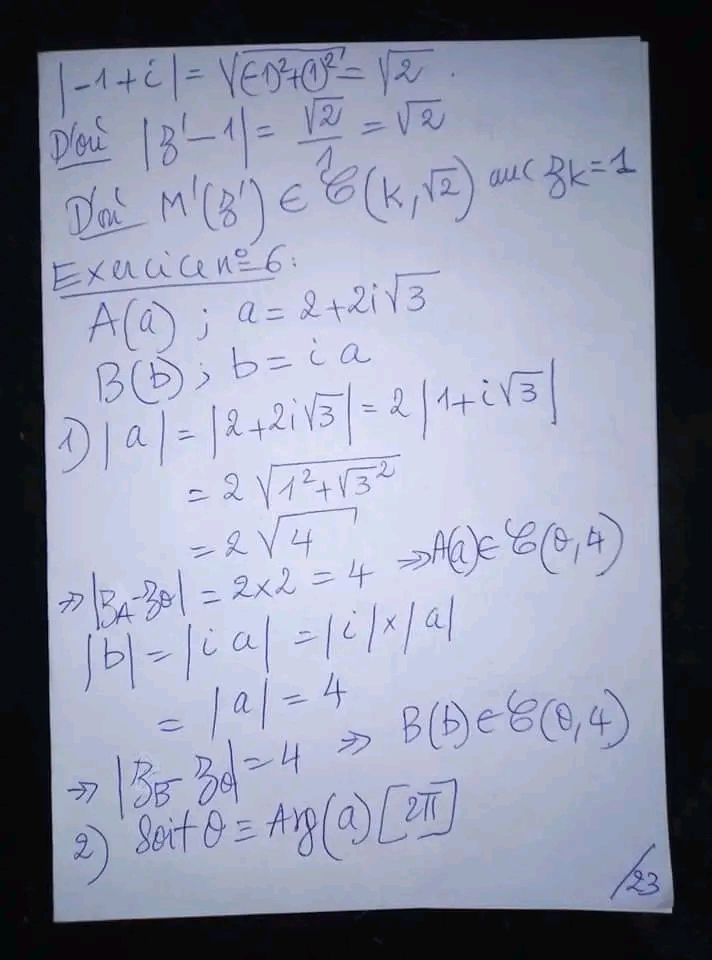 |-1+i| = √((-1)²+(1)²) = √2.
D'où |z'-1| = √2/1 = √2
D'où M'(z') ∈ C(K,√2) avec zK=1
Exercice n° 6:
A(a) ; a = 2+2i√3
B(b) ; b = i a
1) |a| = |2+2i√3| = 2|1+i√3|
= 2√(1²+√3²)
= 2√4
⇒ |zA-zO| = 2×2 = 4 ⇒ A(a) ∈ C(O,4)
|b| = |i a| = |i|×|a|
= |a| = 4
⇒ |zB-zO| = 4 ⇒ B(b) ∈ C(O,4)
2) Soit θ ≡ Arg(a) [2π]
/23